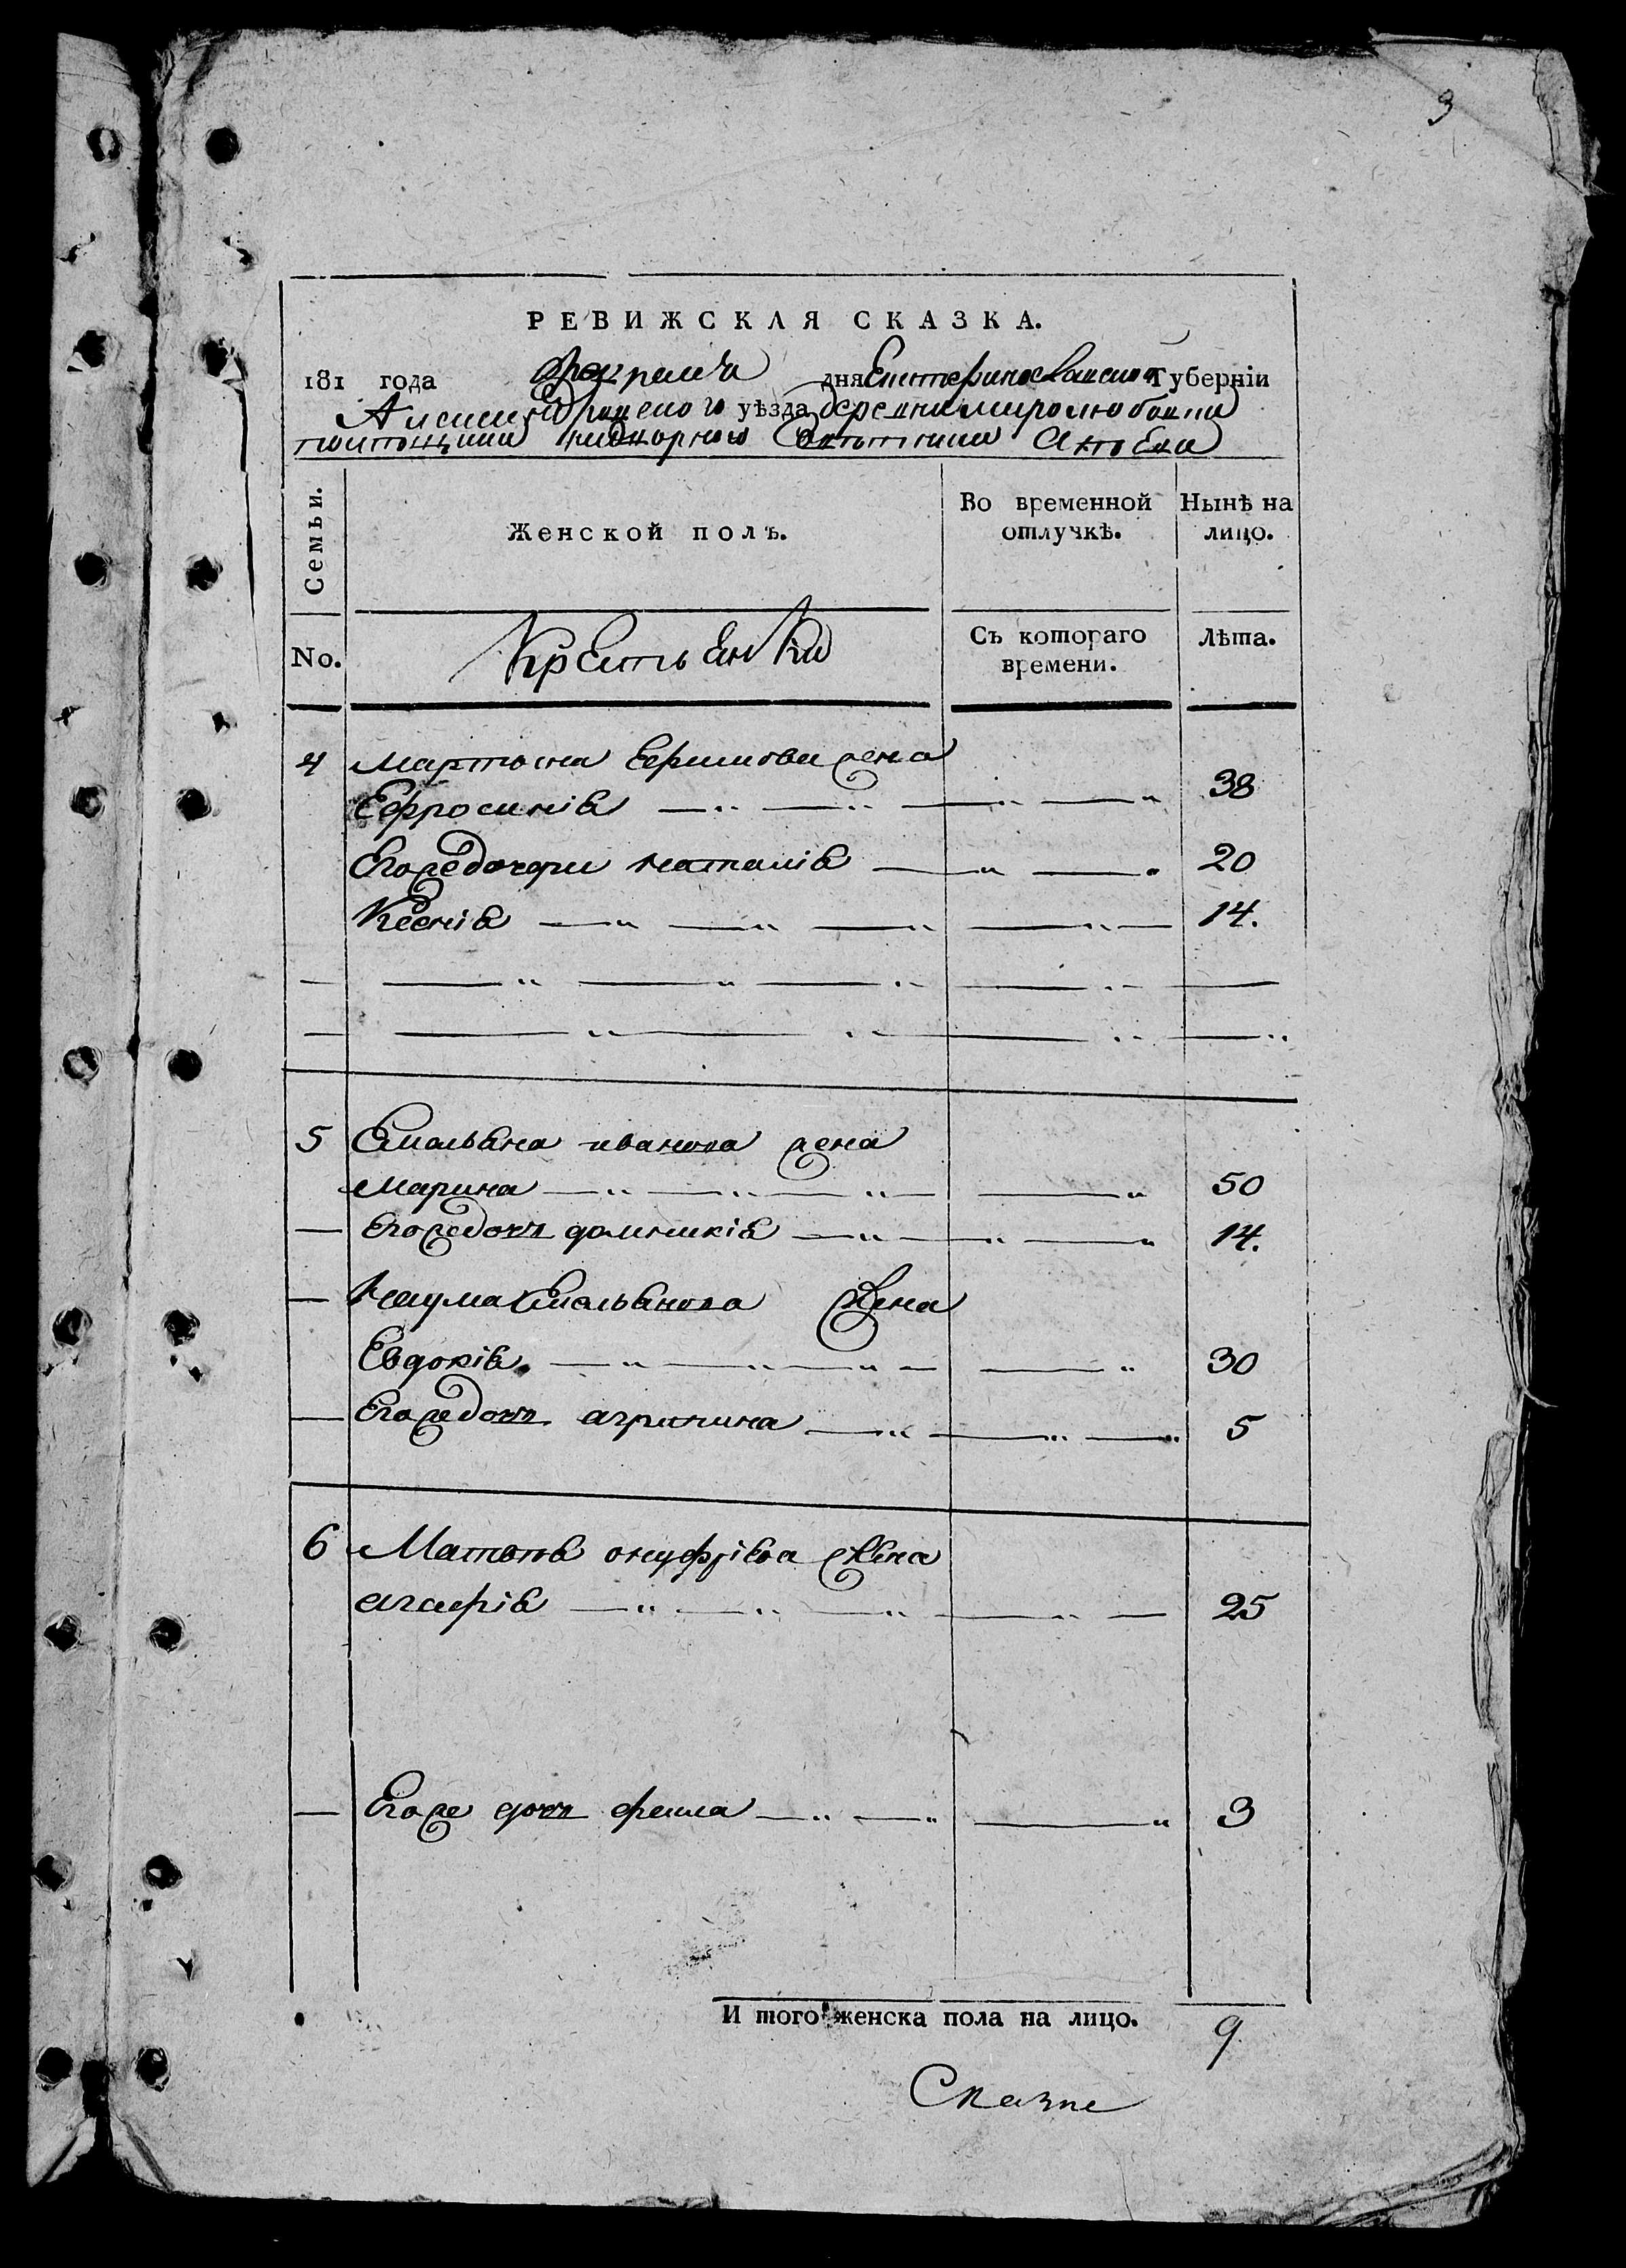 3
РЕВИЖСКАЯ СКАЗКА.
181 года февраля дня Екатеринославской Губерніи
Александровского уѣзда деревни миролюбовки
надворного Советника
Семьи. Женской полъ. Во временной отлучкѣ. Нынѣ на лицо.
No. Крестьянки Съ котораго времени. Лѣта.
4 Мартына Ефимова жена
Ефросинія 38
Егоже дочери наталія 20
Ксенія 14.
5 Емельяна иванова жена
Марина 50
Егоже дочь домникія 14.
Наума Емельянова жена
Евдокія 30
Егоже дочь агрипина 5
6 Матвѣя онуфріева жена
агафія 25
Егоже дочь фекла 3
И того женска пола на лицо. 9
Сказке